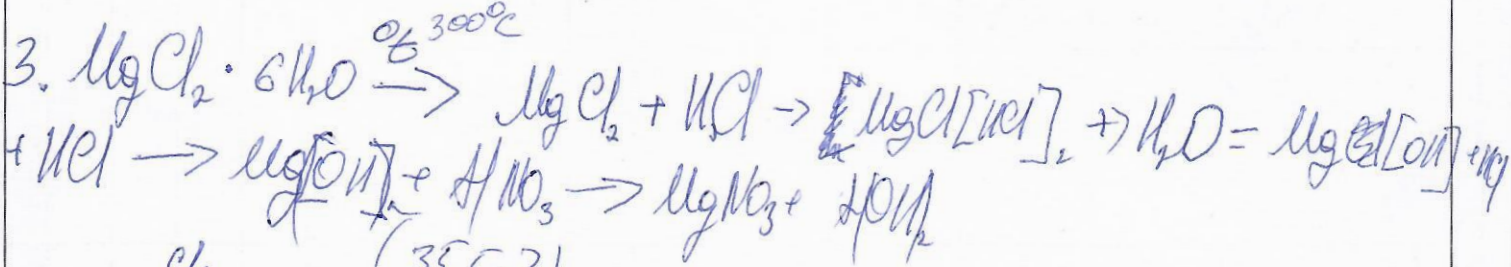 3. MgCl₂ · 6H₂O 300°C → MgCl₂ + HCl → [MgCl[HCl]₂ + → H₂O = Mg [OH] + HCl
+ HCl → Mg[OH]₂ + HNO₃ → MgNO₃ + (OH)₂
Cl (35